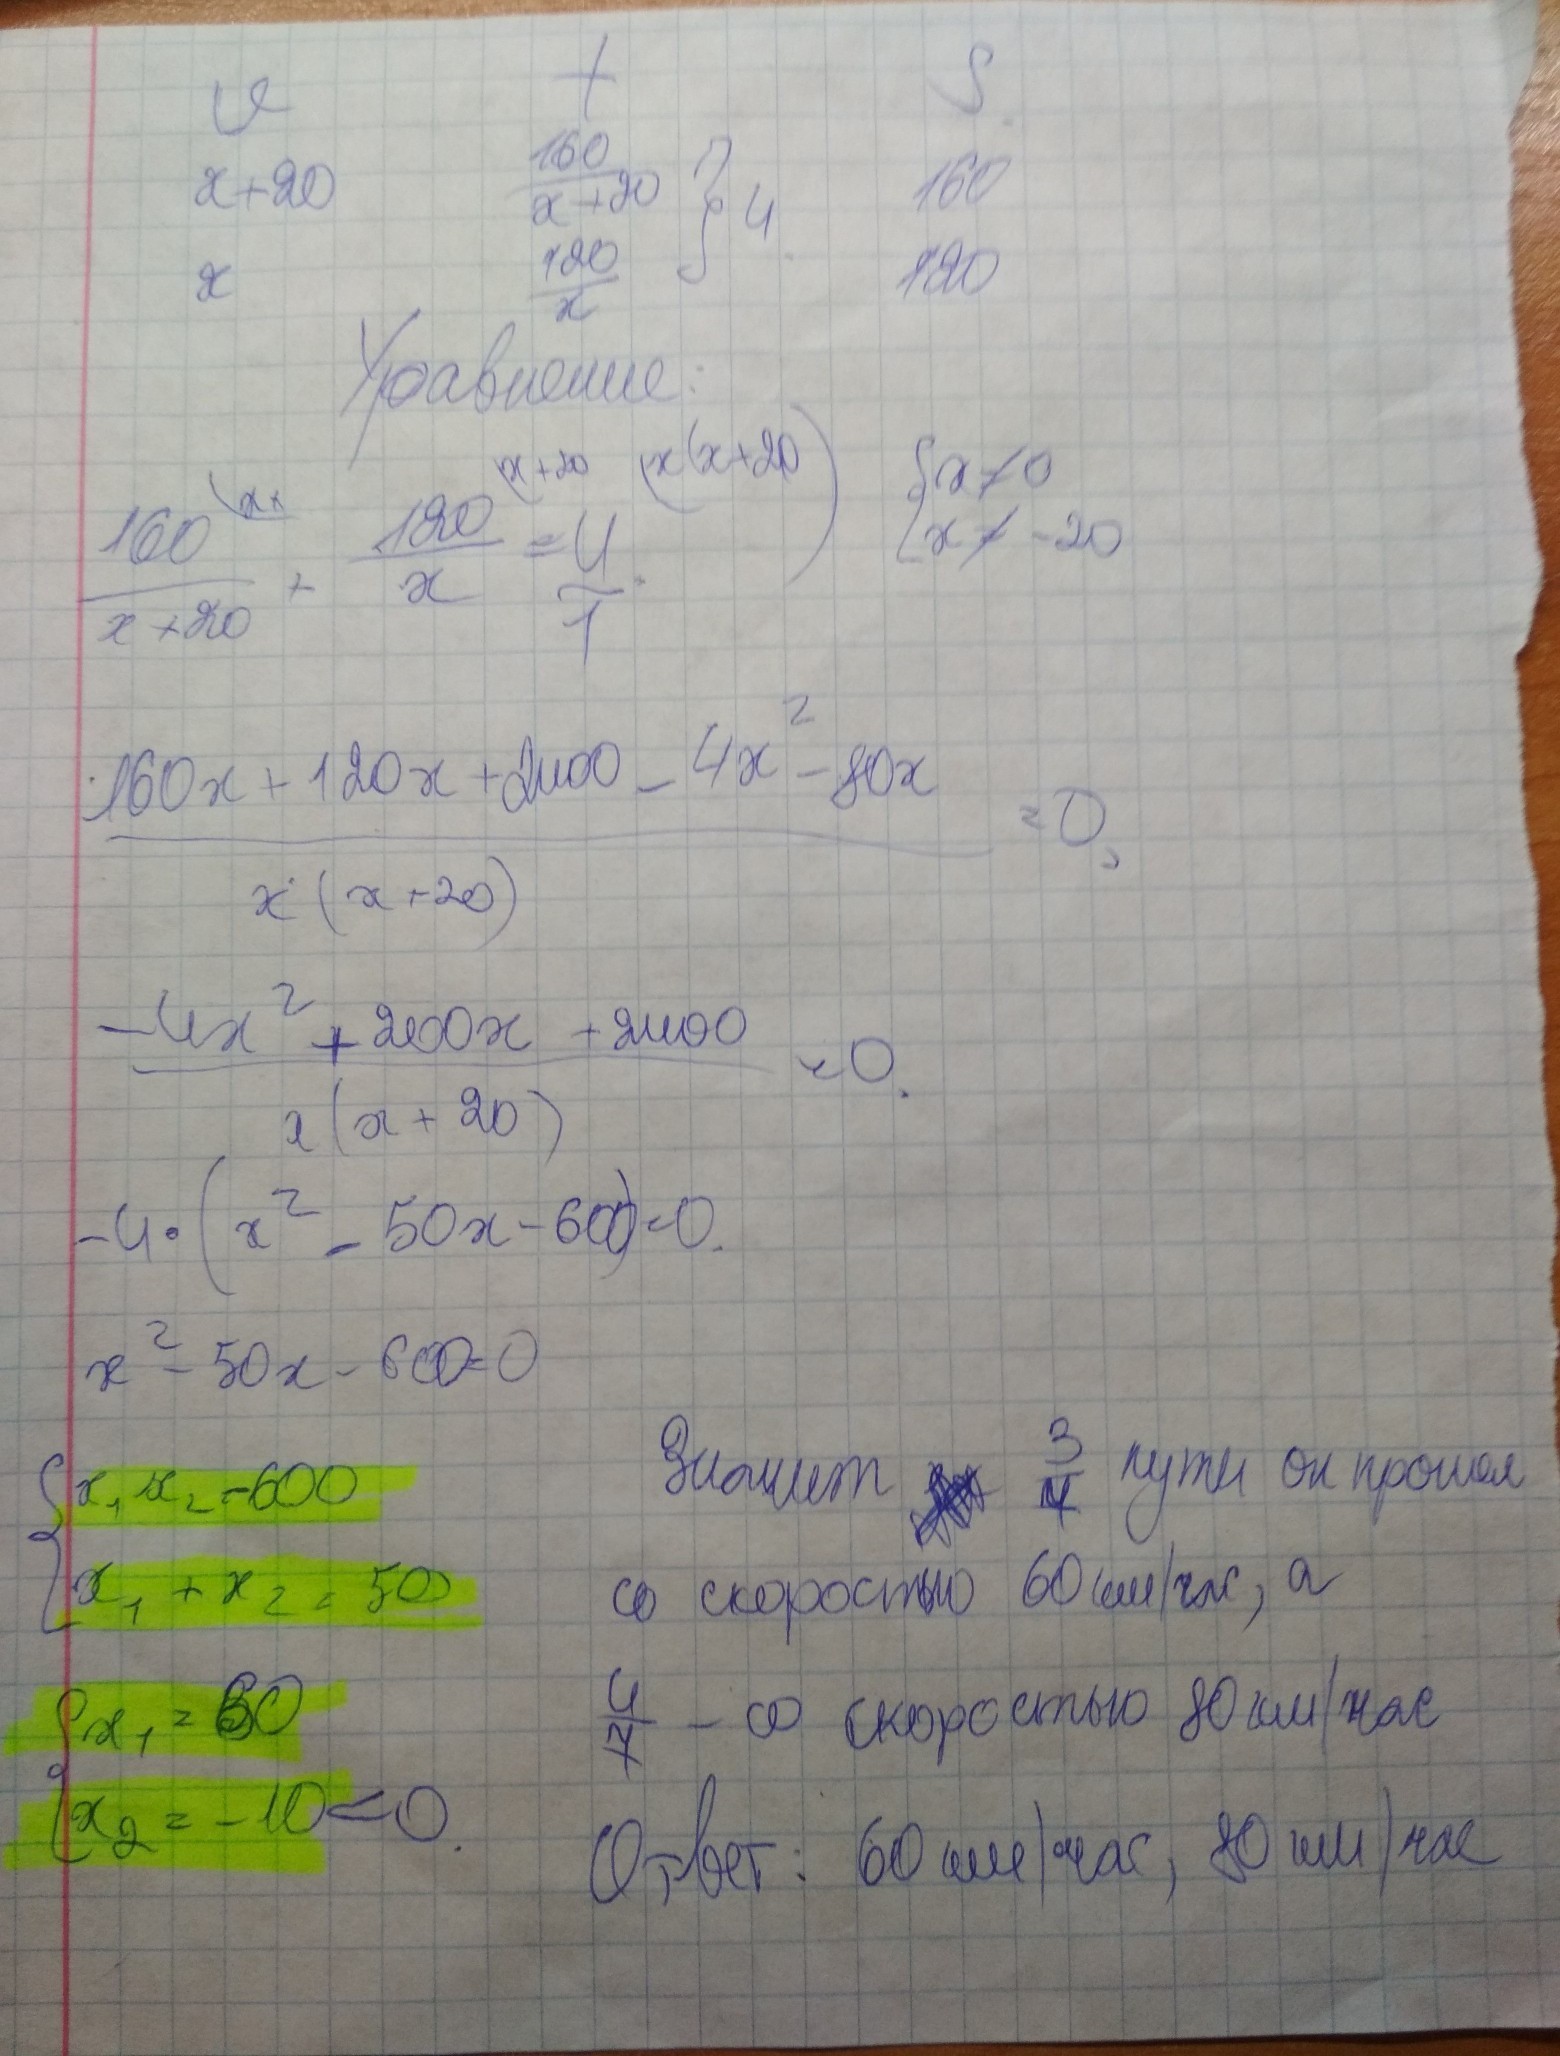 v t S
x+20 160/(x+20) } 4 160
x 120/x 120
Уравнение:
160/(x+20) + 120/x = 4/1 {x≠0
(x+20 (x(x+20) {x≠-20
(160x+120x+2400-4x²-80x)/(x·(x+20)) =0,
(-4x²+200x+2400)/(x(x+20)) =0.
-4·(x²-50x-600)=0.
x²-50x-600=0
{x₁x₂=-600
{x₁+x₂=50
{x₁=60
{x₂=-10<0.
Значит 3/7 пути он прошел
со скоростью 60 км/час, а
4/7 - со скоростью 80 км/час
Ответ: 60 км/час, 80 км/час